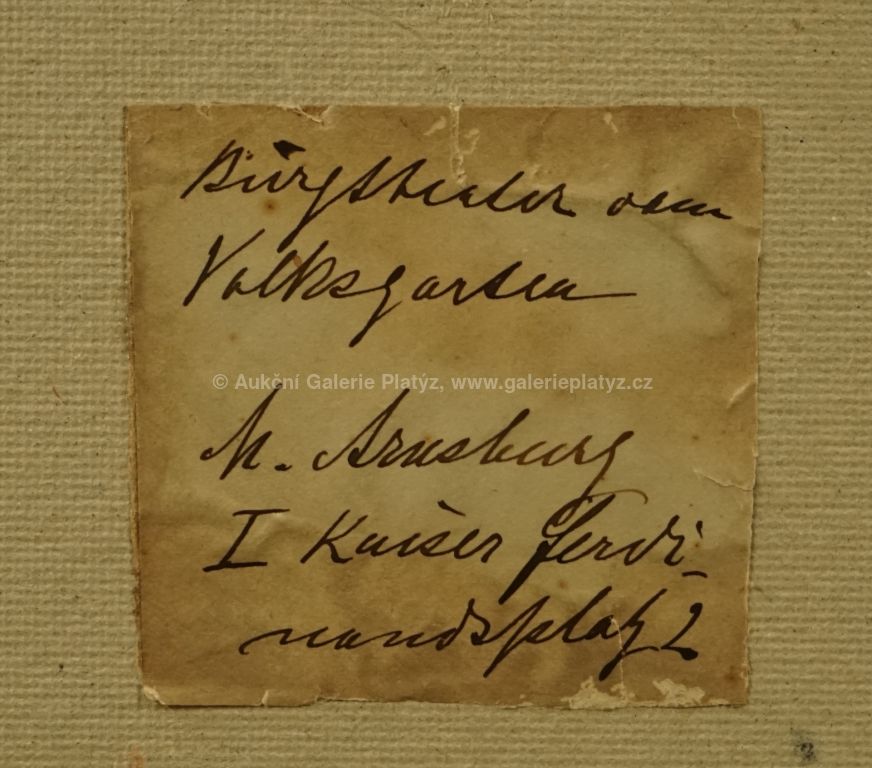 Burgtheater vom
Volksgarten
© Aukční Galerie Platýz, www.galerieplatyz.cz
M. Arnsburg
I Kaiser Ferdi-
nandsplatz 2